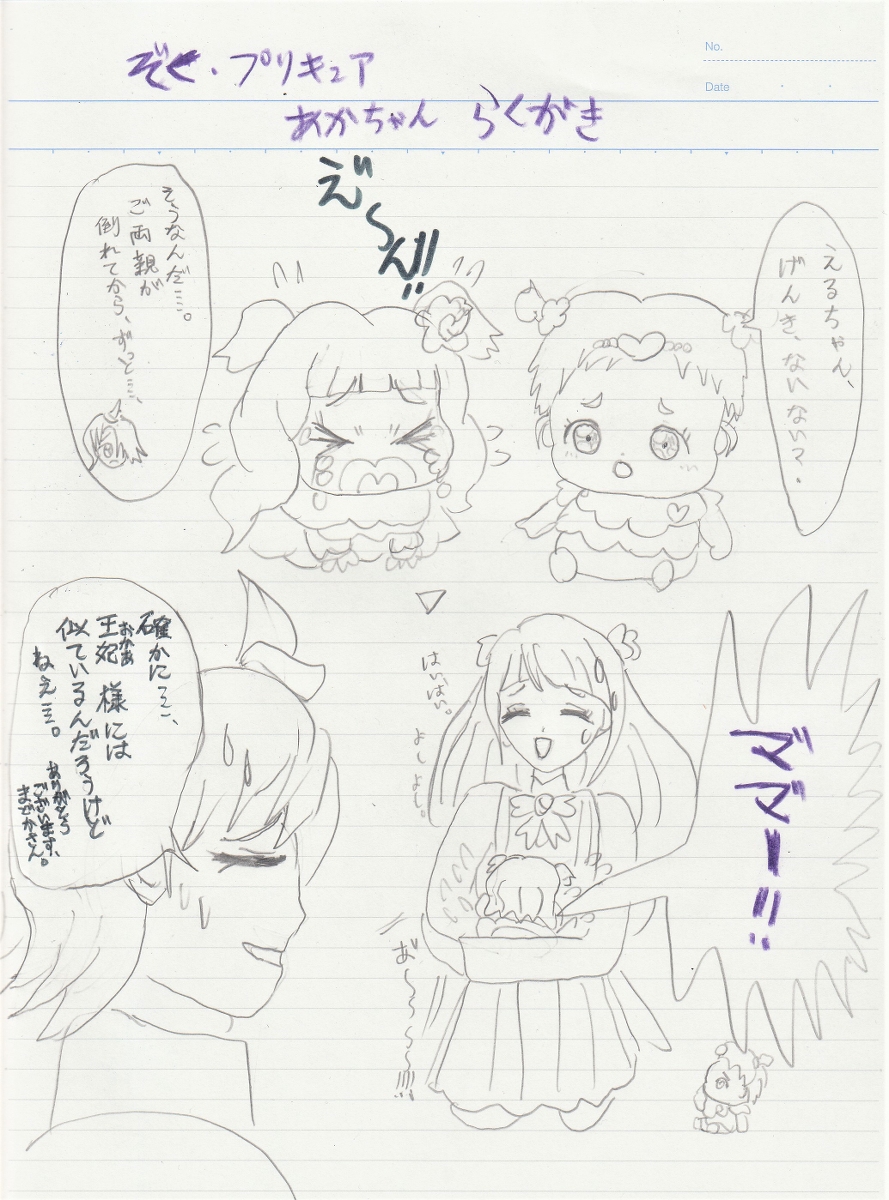 No.
Date
ぞく・プリキュア
あかちゃん らくがき
えるちゃん、
げんき、ないない?.
え゛〜ん!!
そうなんだ…。
ご両親が
倒れてから、ずっと…、
ママー!!
はいはい。
よしよし。
あ゛〜〜〜〜!!!!
確かに…、
王妃様には
おかあ
似ているんだろうけど
ねえ…。
ありがとう
ございます、
まどかさん。